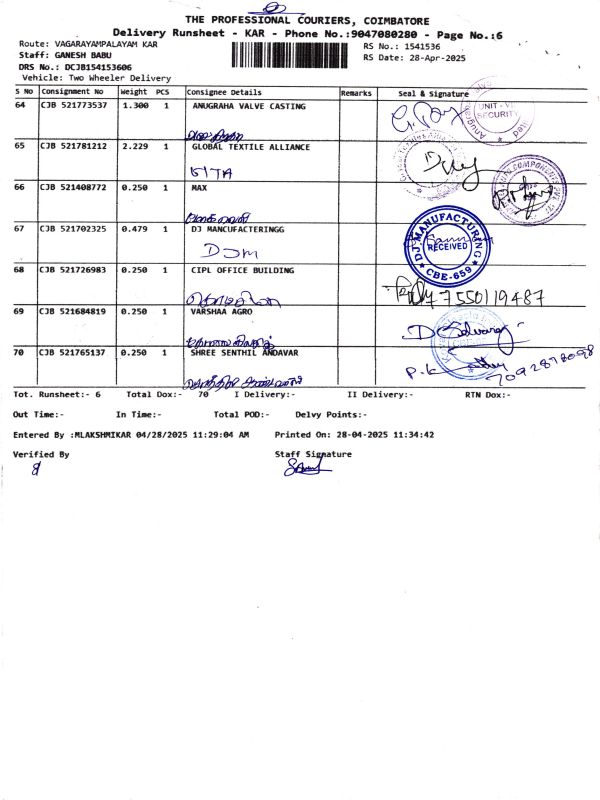 THE PROFESSIONAL COURIERS, COIMBATORE
Delivery Runsheet - KAR - Phone No.:9047080280 - Page No.:6
Route: VAGARAYAMPALAYAM KAR
RS No.: 1541536
Staff: GANESH BABU
RS Date: 28-Apr-2025
DRS No.: DCJB154153606
Vehicle: Two Wheeler Delivery
S NO Consignment No Weight PCS Consignee Details Remarks Seal & Signature
64 CJB 521773537 1.300 1 ANUGRAHA VALVE CASTING
UNIT - VI
SECURITY
65 CJB 521781212 2.229 1 GLOBAL TEXTILE ALLIANCE
GITA
66 CJB 521408772 0.250 1 MAX
67 CJB 521702325 0.479 1 DJ MANCUFACTERINGG
DJM
DJ MANUFACTURING
RECEIVED
CBE-659
68 CJB 521726983 0.250 1 CIPL OFFICE BUILDING
7550119487
69 CJB 521684819 0.250 1 VARSHAA AGRO
70 CJB 521765137 0.250 1 SHREE SENTHIL ANDAVAR
7092878098
Tot. Runsheet:- 6 Total Dox:- 70 I Delivery:- II Delivery:- RTN Dox:-
Out Time:- In Time:- Total POD:- Delvy Points:-
Entered By :MLAKSHMIKAR 04/28/2025 11:29:04 AM Printed On: 28-04-2025 11:34:42
Verified By Staff Signature